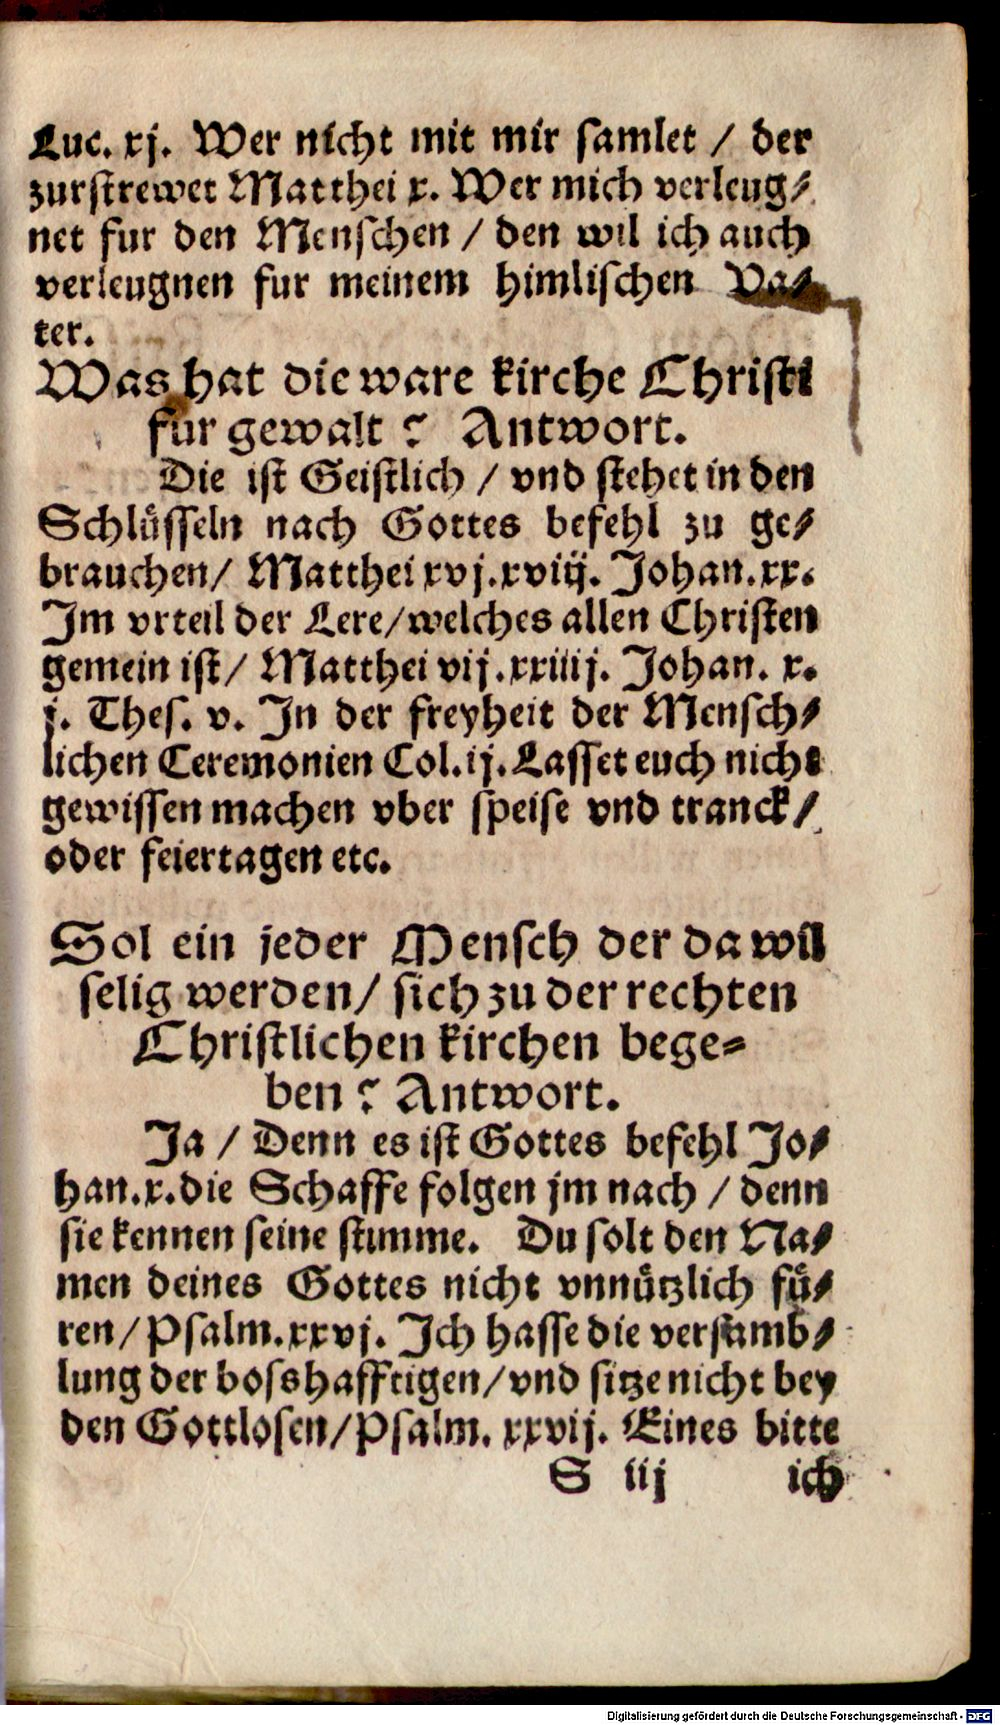 Luc. xj. Wer nicht mit mir samlet / der
zurstrewet Matthei x. Wer mich verleug⸗
net fur den Menschen / den wil ich auch
verleugnen fur meinem himlischen Va⸗
ter.
Was hat die ware kirche Christi
fur gewalt? Antwort.
Die ist Geistlich / vnd stehet in den
Schlüsseln nach Gottes befehl zu ge⸗
brauchen / Matthei xvj. xviij. Johan. xx.
Im vrteil der Lere / welches allen Christen
gemein ist / Matthei vij. xxiiij. Johan. x.
j. Thes. v. In der freyheit der Mensch⸗
lichen Ceremonien Col. ij. Lasset euch nicht
gewissen machen vber speise vnd tranck /
oder feiertagen etc.
Sol ein jeder Mensch der da wil
selig werden / sich zu der rechten
Christlichen kirchen bege⸗
ben? Antwort.
Ja / Denn es ist Gottes befehl Jo⸗
han. x. die Schaffe folgen jm nach / denn
sie kennen seine stimme. Du solt den Na⸗
men deines Gottes nicht vnnützlich fü⸗
ren / Psalm. xxvj. Ich hasse die versamb⸗
lung der bosshafftigen / vnd sitze nicht bey
den Gottlosen / Psalm. xxvij. Eines bitte
S iij ich
Digitalisierung gefördert durch die Deutsche Forschungsgemeinschaft - DFG